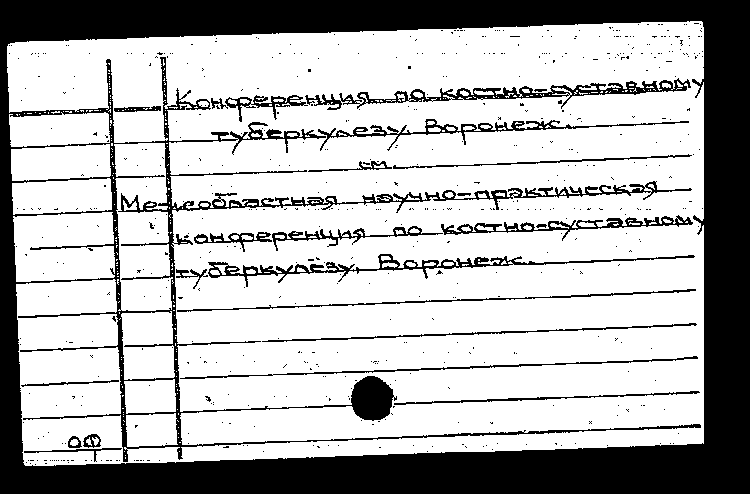 Конференция по костно-суставному
туберкулезу. Воронеж.
см.
Межобластная научно-практическая
конференция по костно-суставному
туберкулёзу. Воронеж.
ОФ